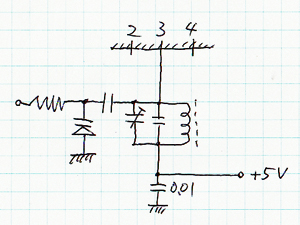 2 3 4
+5V
0.01